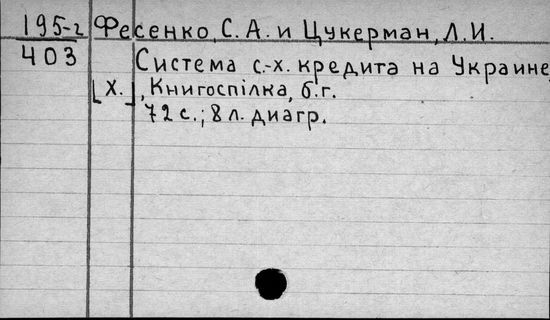 195-2 Фесенко, С. А. и Цукерман, Л. И.
403 Система с.-х. кредита на Украине
[Х.], Книгоспілка, б.г.
72 с.; 8 л. диагр.